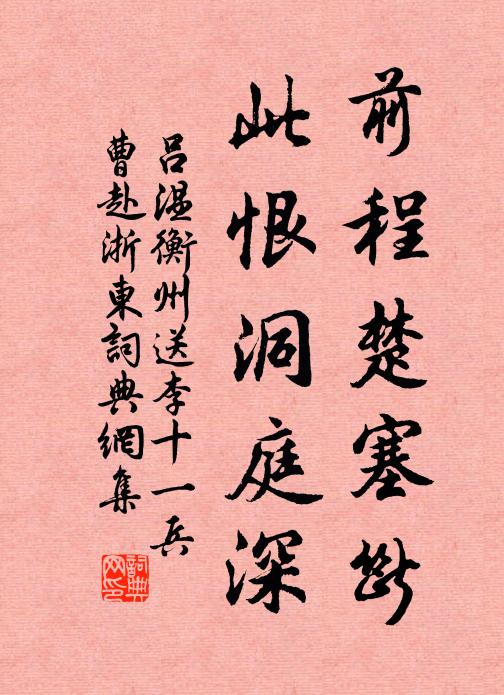 前程楚塞断
此恨洞庭深
吕温衡州送李十一兵
曹赴浙東詞典網集
詞典
网印